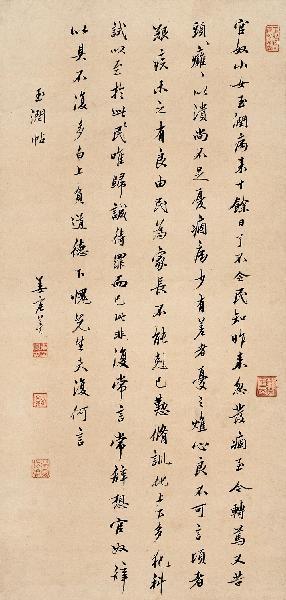 官奴小女玉潤病来十餘日了不令民知昨来忽發痼至今轉篤又苦
頭癰〻以潰尚不足憂痼病少有差者憂之燋心良不可言頃者
艱疾未之有良由民為家長不能尅己懃脩訓化上下多犯科
誡以至於此民唯歸誠待罪而已此非復常言常辭想官奴辭
以具不復多白上負道德下愧先生夫復何言
玉潤帖
姜宸英